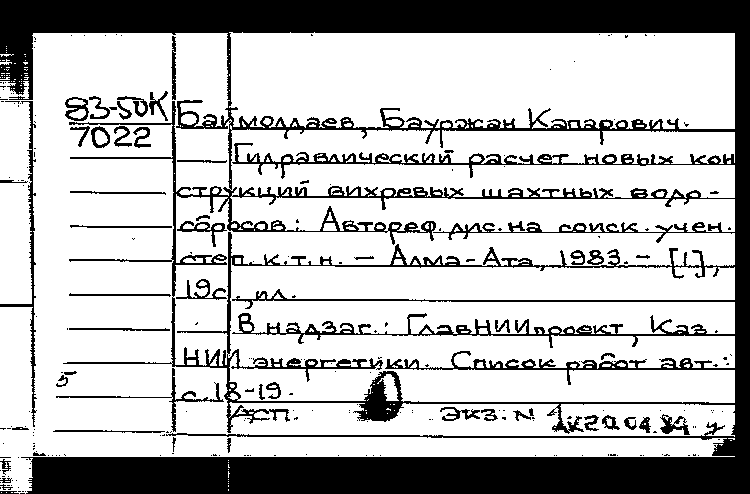 83-50К
7022
Баймолдаев, Бауржан Капарович.
Гидравлический расчет новых кон
струкций вихревых шахтных водо-
сбросов: Автореф. дис. на соиск. учен.
степ. к.т.н. – Алма-Ата, 1983. – [1],
19с., ил.
В надзаг.: ГлавНИИпроект, Каз.
НИИ энергетики. Список работ авт.:
с. 18-19.
5
Асп. экз. N